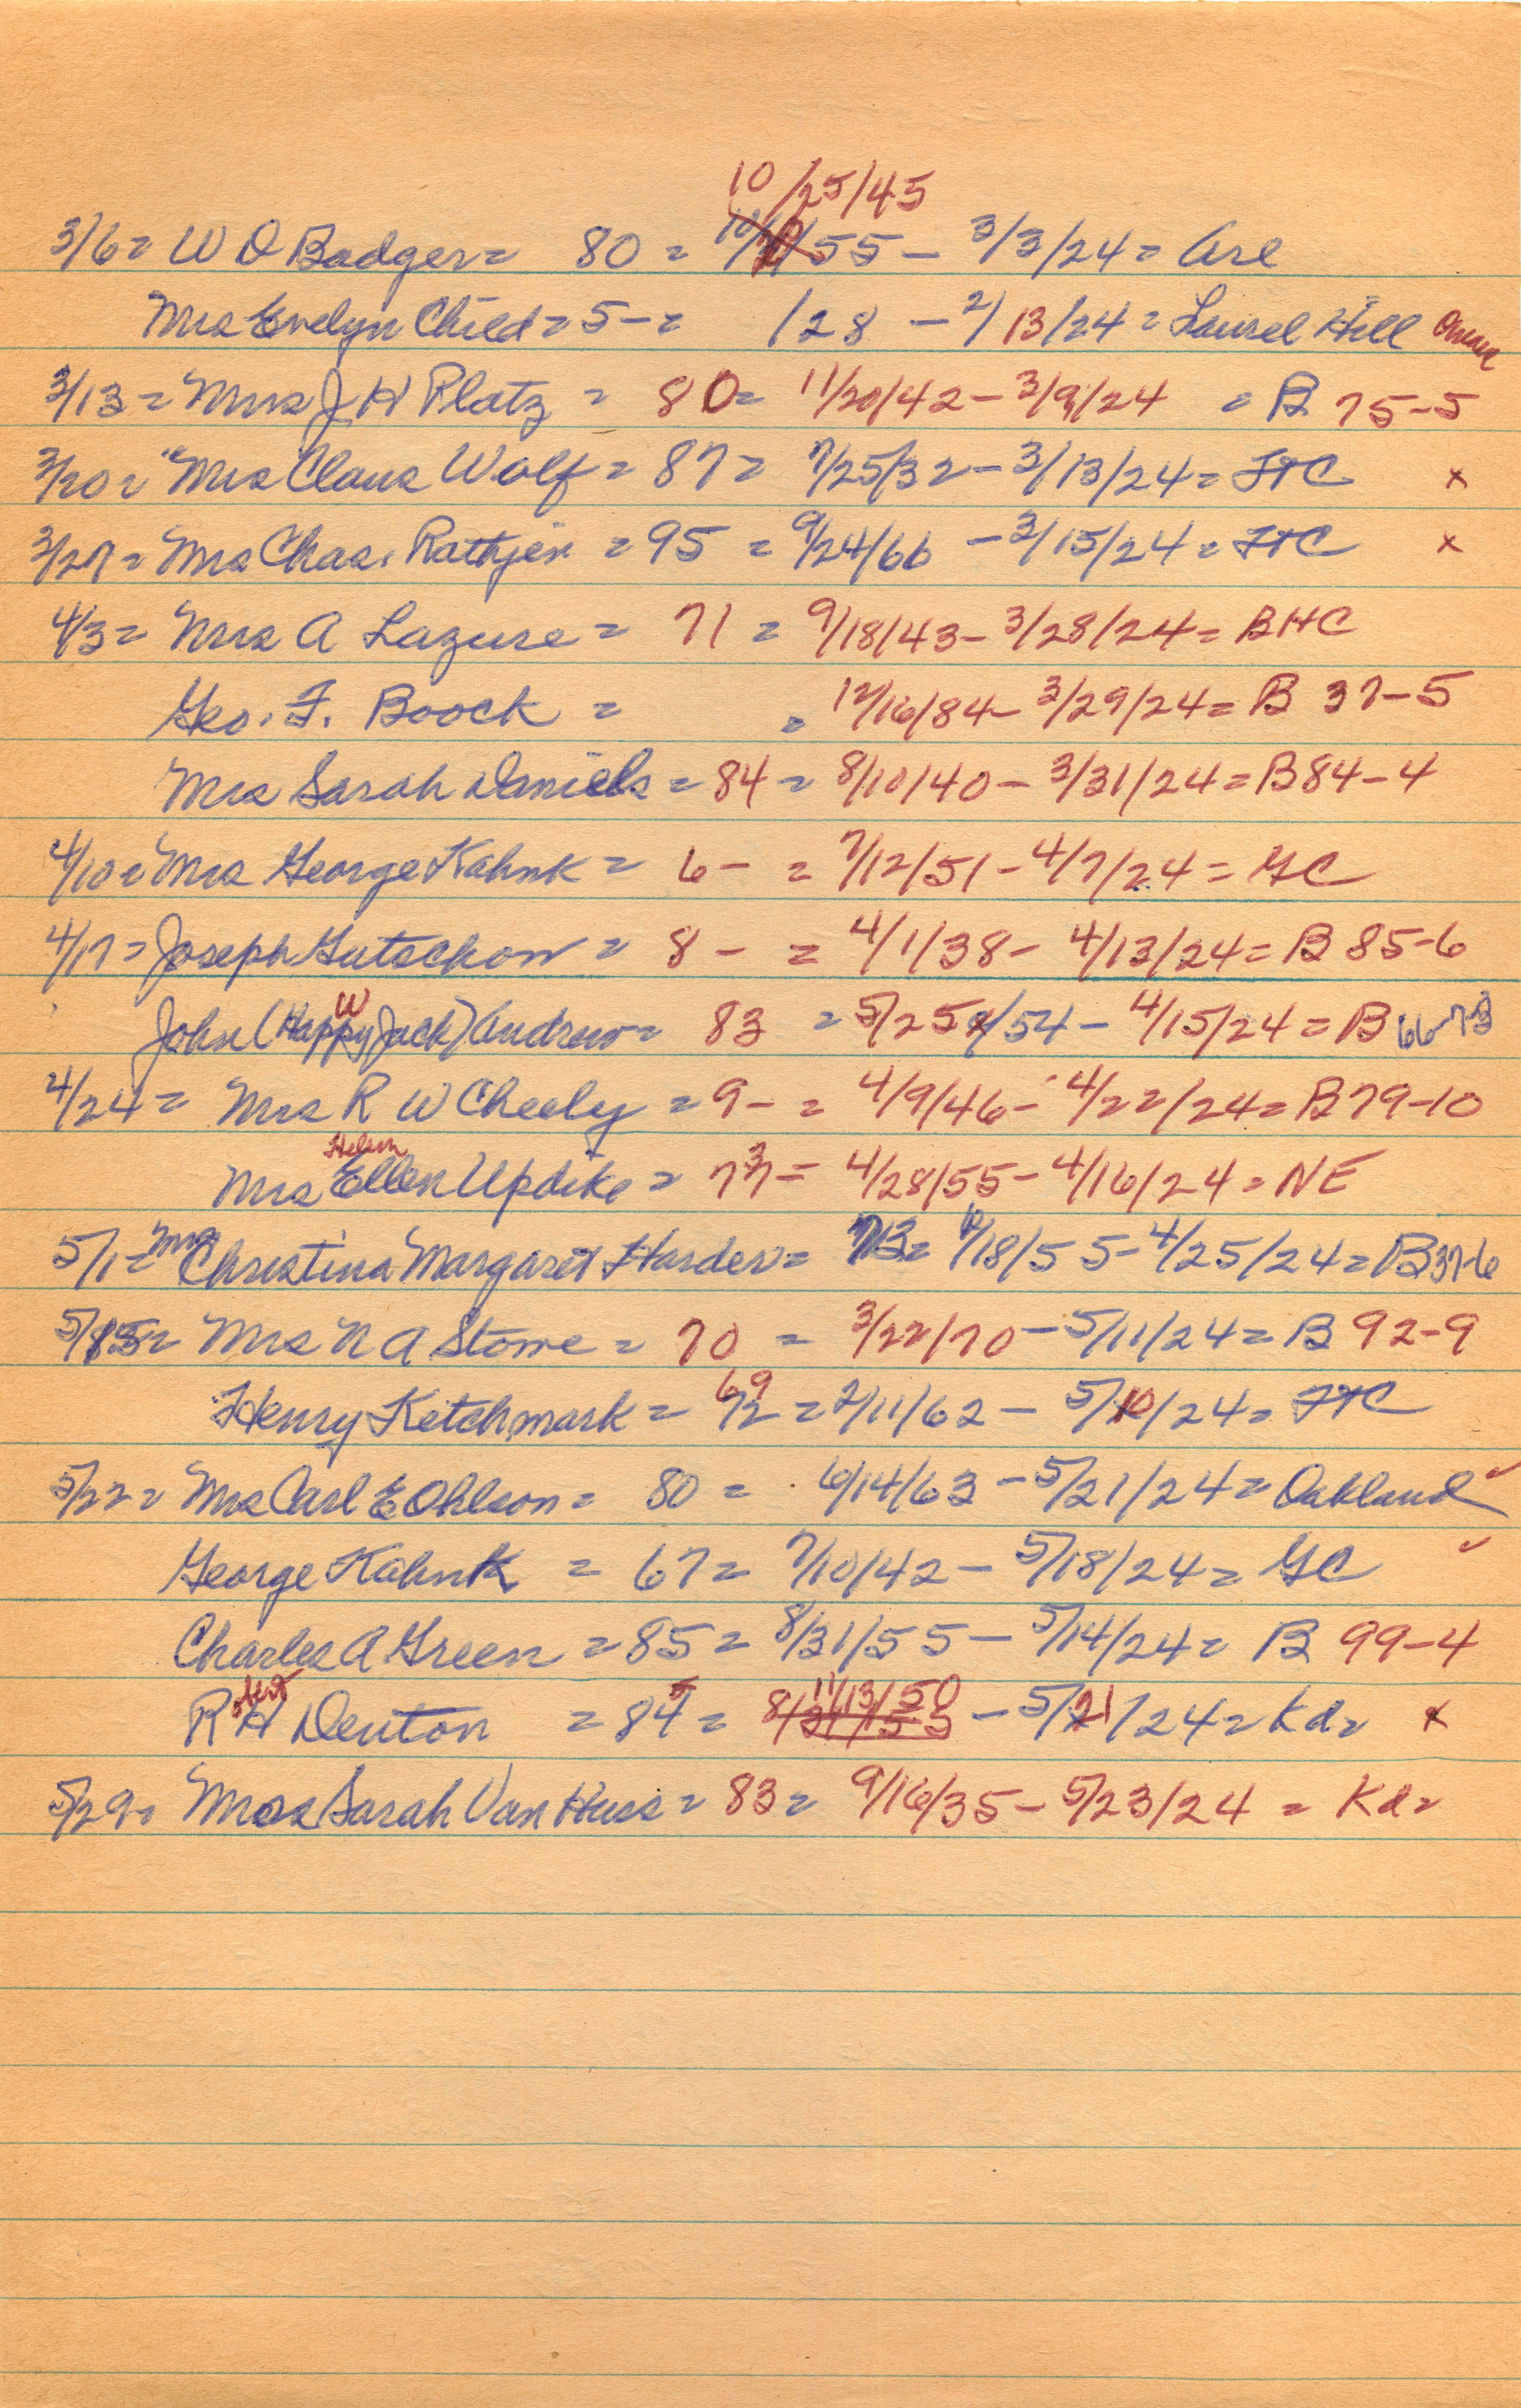 10/25/45
3/6 = W D Badger = 80 = 55 - 3/3/24 = Arl
Mrs Evelyn Child = 5- = /28 - 2/13/24 = Laurel Hill
3/13 = Mrs J H Platz = 80 = 11/20/42 - 3/9/24 = B 75-5
3/20 = Mrs Claus Wolf = 87 = 7/25/32 - 3/13/24 = FTC x
3/27 = Mrs Chas. Rathjen = 95 = 9/24/66 - 3/15/24 = FTC x
4/3 = Mrs A Lazure = 71 = 9/18/43 - 3/28/24 = BHC
Geo. F. Boock = = 12/16/84 - 3/29/24 = B 37-5
Mrs Sarah Daniels = 84 = 8/10/40 - 3/31/24 = B 84-4
4/10 = Mrs George Kahnk = 6- = 7/12/51 - 4/7/24 = GC
4/17 = Joseph Gutschow = 8- = 4/1/38 - 4/13/24 = B 85-6
W
John (Happy Jack) Andrew = 83 = 5/25/54 - 4/15/24 = B 66-73
4/24 = Mrs R W Cheely = 9- = 4/9/46 - 4/22/24 = B 79-10
Helen
Mrs Ellen Updike = 77 = 4/28/55 - 4/16/24 = NE
5/1 = Mrs Christina Margaret Harder = 73 = /18/55 - 4/25/24 = B 37-6
5/15 = Mrs N A Stowe = 70 = 3/22/70 - 5/11/24 = B 92-9
69
Henry Ketchmark = 72 = 2/11/62 - 5/10/24 = FTC
5/22 = Mrs Carl E Ohlson = 80 = 6/14/63 - 5/21/24 = Oakland ✓
George Kahnk = 67 = 7/10/42 - 5/18/24 = GC ✓
Charles A Green = 85 = 8/31/55 - 5/14/24 = B 99-4
obert 11/13/50
R H Denton = 84 = 8/31/55 - 5/21/24 = Kd = x
5/29 = Mrs Sarah Van Huss = 83 = 9/16/35 - 5/23/24 = Kd =